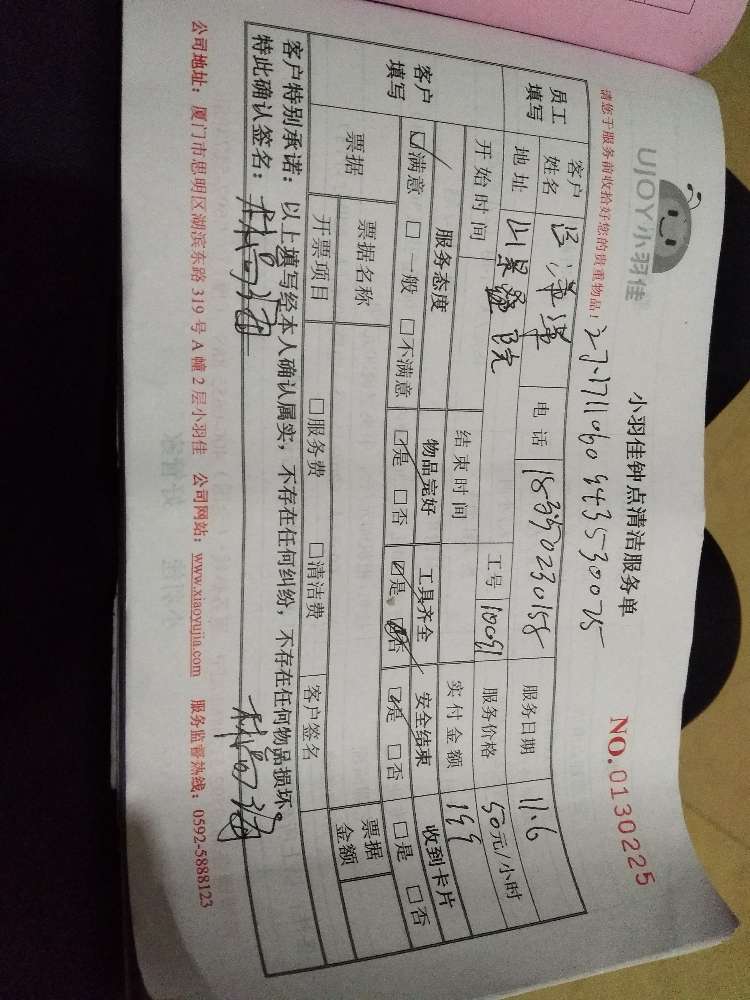 UJOY小羽佳
小羽佳钟点清洁服务单
NO.0130225
请您于服务前收拾好您的贵重物品!
员工填写 客户姓名 电话 18350230158 服务日期 11.6
地址 工号 10091 服务价格 50元/小时
开始时间 结束时间 实付金额 199
客户填写 服务态度 物品完好 工具齐全 安全结束 收到卡片
☑满意 □一般 □不满意 ☑是 □否 ☑是 □否 ☑是 □否 □是 □否
票据 票据名称 客户签名 票据金额
开票项目 □服务费 □清洁费
客户特别承诺:以上填写经本人确认属实,不存在任何纠纷,不存在任何物品损坏。
特此确认签名:
公司地址:厦门市思明区湖滨东路 319 号 A 幢 2 层小羽佳 公司网站:www.xiaoyujia.com 服务监督热线:0592-5888123